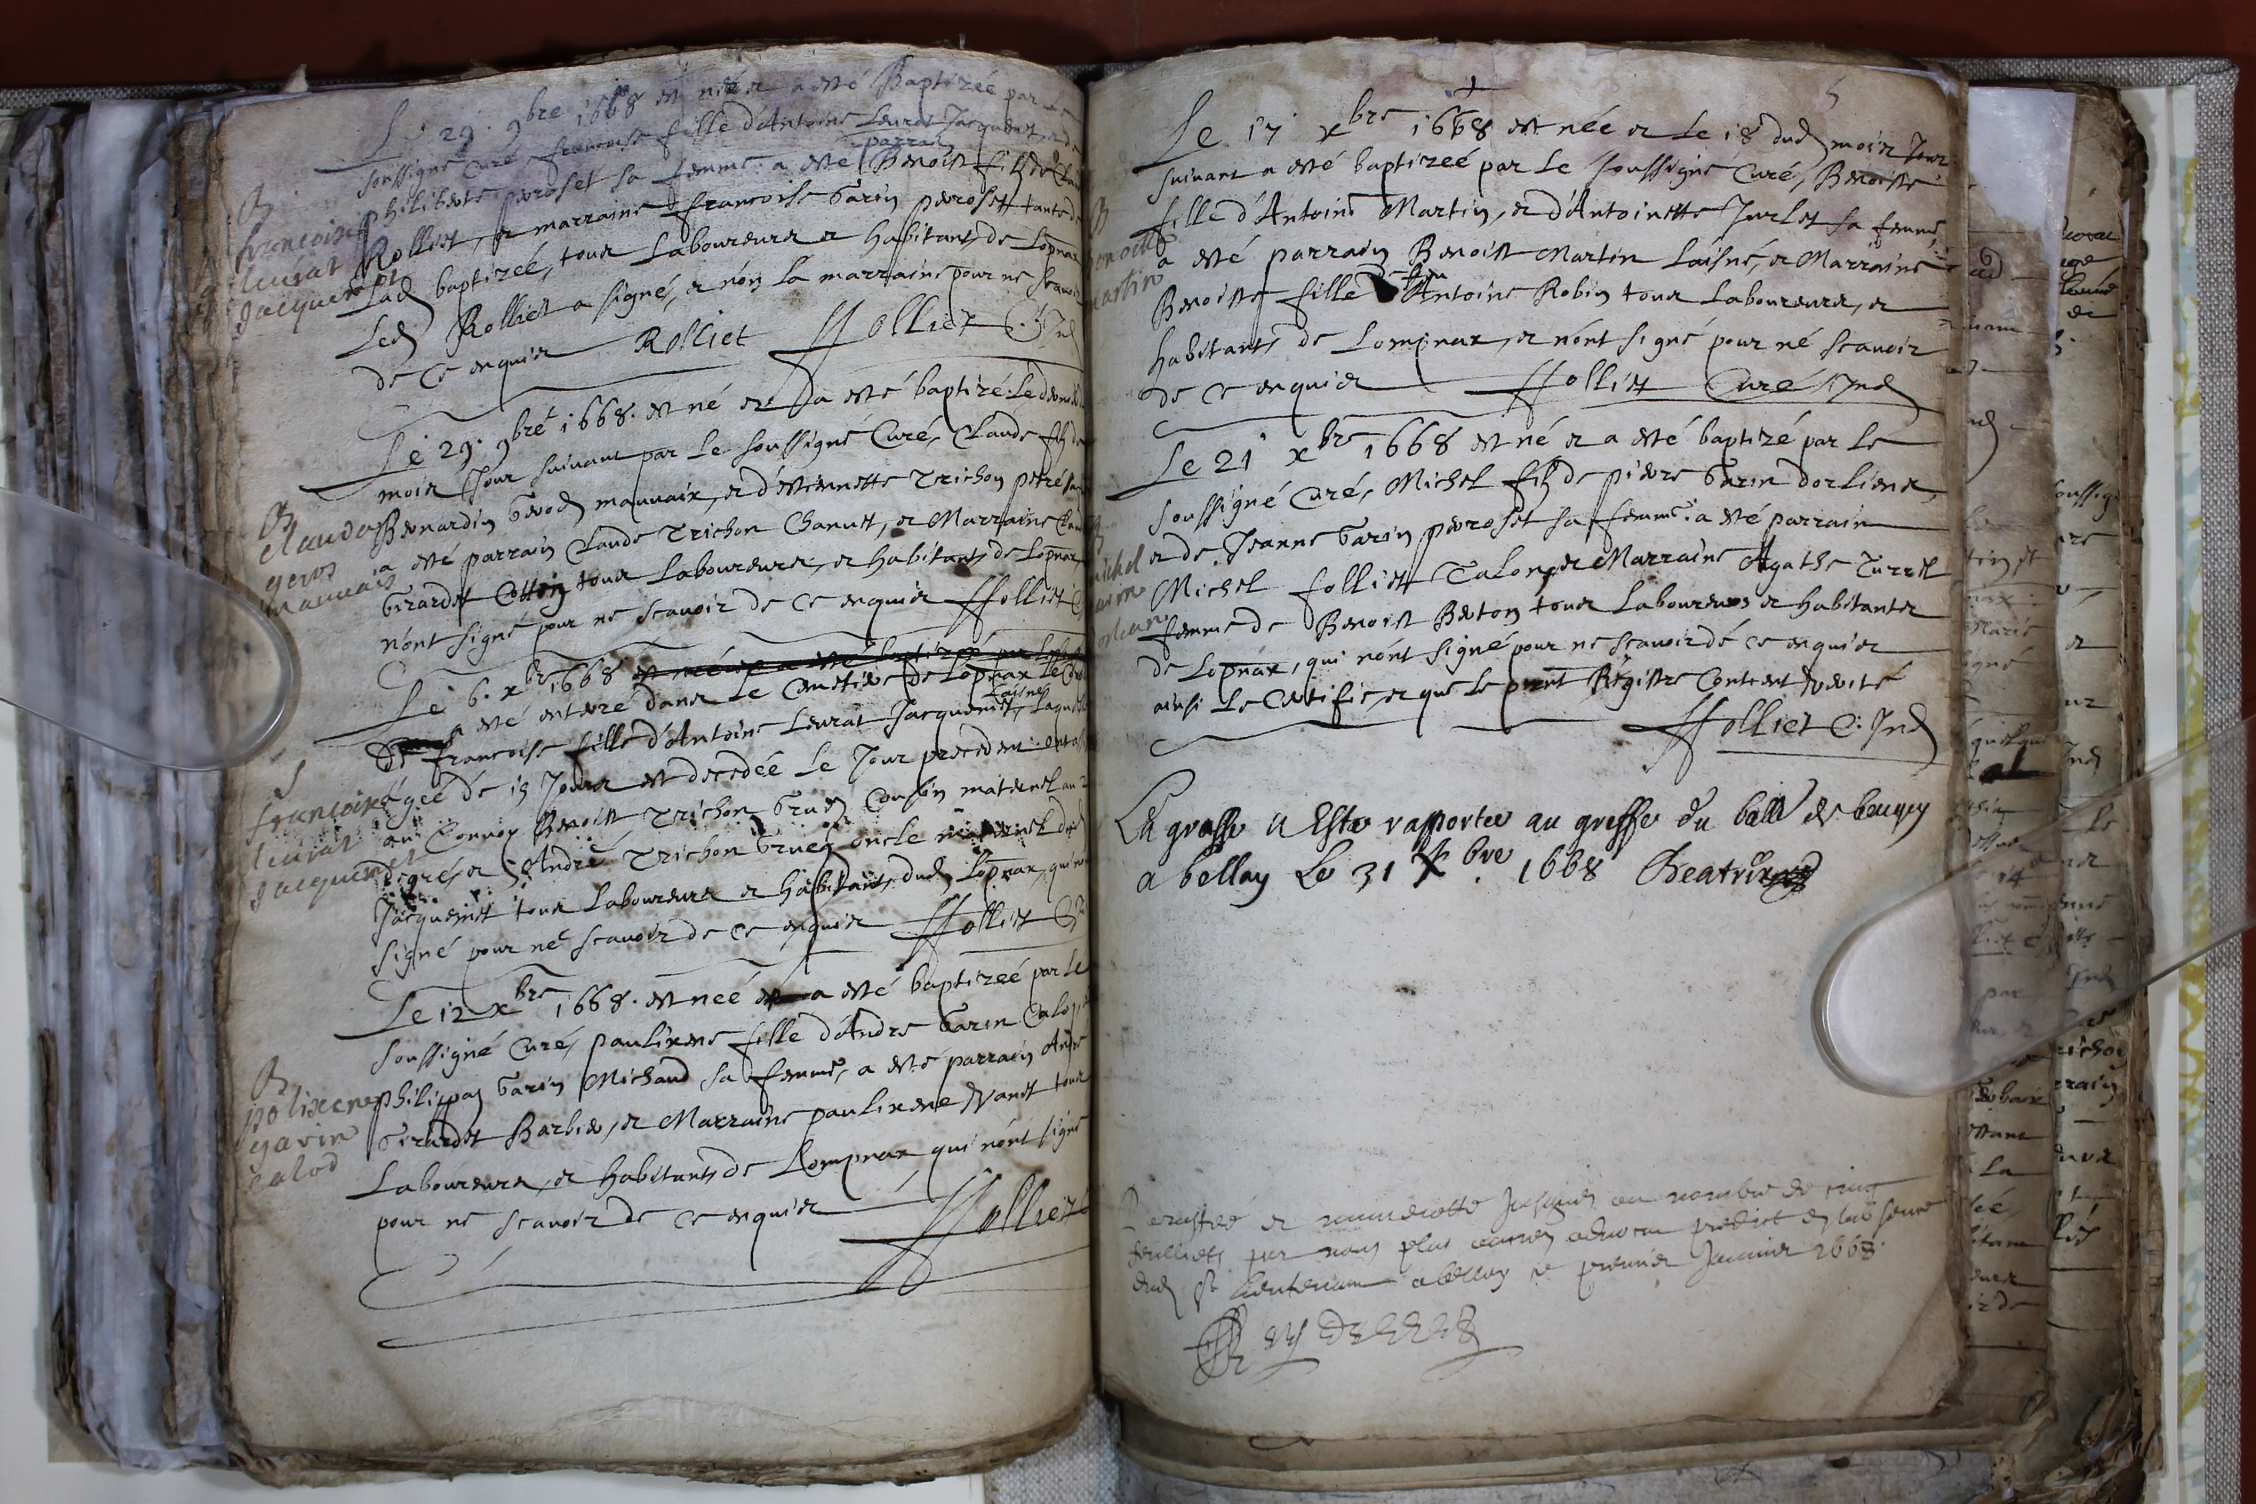 Le 29. 9bre 1668 est née et a esté Baptizée par le
soussigné Curé, francoise fille d'Antoine Leurat Jacquemet, et de
philiberte perroset sa femme. a esté parrain Benoist filz de Claude
Rolliet, et marraine francoise Garin perroset tante de
Lad baptizeé, tous Laboureurs et habitants de Lopnax
Led Rolliet a signé, et non la marraine pour ne scavoir
de ce enquise Rolliet ffolliet C: Ind
B
francoise
leurat
Jacquemet
Le 29. 9bre 1668. est né et a esté baptizé Le dernier
mois Jour suivant par Le soussigné Curé, Claude filz de
Bernardin Gerod mauvaix, et d'estiennette Trichon petre sa
a esté parrain Claude Trichon Chanut, et Marraine
Girardet Cottin tous Laboureurs, et habitants de Lopnax
n'ont signé pour ne scavoir de ce enquis ffolliet C
B
claude
geros
mauvais
Le 6. xbre 1668 est née et a esté baptizée par Le
a esté enterré dans Le Cemetiere de Lopnax Le Corps
de francoise fille d'Antoine Leurat Jacquemet, Laisné Laquelle
âgeé de 15 Jours est decedée Le Jour precedent. ont assi
au Convoy Benoist Trichon Grued Cousin maternel au 2
degré, et André Trichon Grued oncle maternel
Jacquemet tous Laboureurs et habitants dud Lopnax, qui n'ont
signé pour ne scavoir de ce enquis ffolliet C
S
francoise
leurat
Jacquemet
Le 12 xbre 1668. est neé et a esté baptizeé par Le
soussigné Curé, paulixene fille d'Andre Garin Calod
philippaz Garin Michaud sa femme, a esté parrain André
Girardet Barbier, et Marraine paulixene Evanet tous
Laboureurs, et habitants de Lompnax qui n'ont signé
pour ne scavoir de ce enquis ffolliet
B
polixene
garin
calod
5
Le 17 xbre 1668 est née et Le 18 dud mois Jour
suivant a esté baptizeé par Le soussigné Curé, Benoiste
fille d'Antoine Martin, et d'Antoinette Jurlet sa femme,
a esté parrain Benoist Martin Laisné, et Marraine
Benoiste fille d'Antoine Robin tous Laboureurs, et
habitants de Lompnax, et n'ont signé pour né scavoir
de ce enquis ffolliet Curé Ind
B
benoiste
martin
Le 21 xbre 1668 est né et a esté baptizé par Le
soussigné Curé, Michel filz de pierre Garin dorliens,
et de Jeanne Garin perroset sa femme. a esté parrain
Michel folliet Talon, et Marraine Agathe Turrel
femme de Benoist Berton tous Laboureurs et habitants
de Lopnax, qui n'ont signé pour ne scavoir dé ce enquis
ainsi Le Certifie, et que Le pront Régistre Contient verité
ffolliet C: Ind
michel
garin
orlians
La grosse a Este rapportee au greffe du baill de beugey
a bellay Le 31 Xbre. 1668 Beatrix
et numerotté Jusques au nombre de cinq
feuillets par nous plus ancien advocat
lieutenant a belley le premier Janvier 1668.